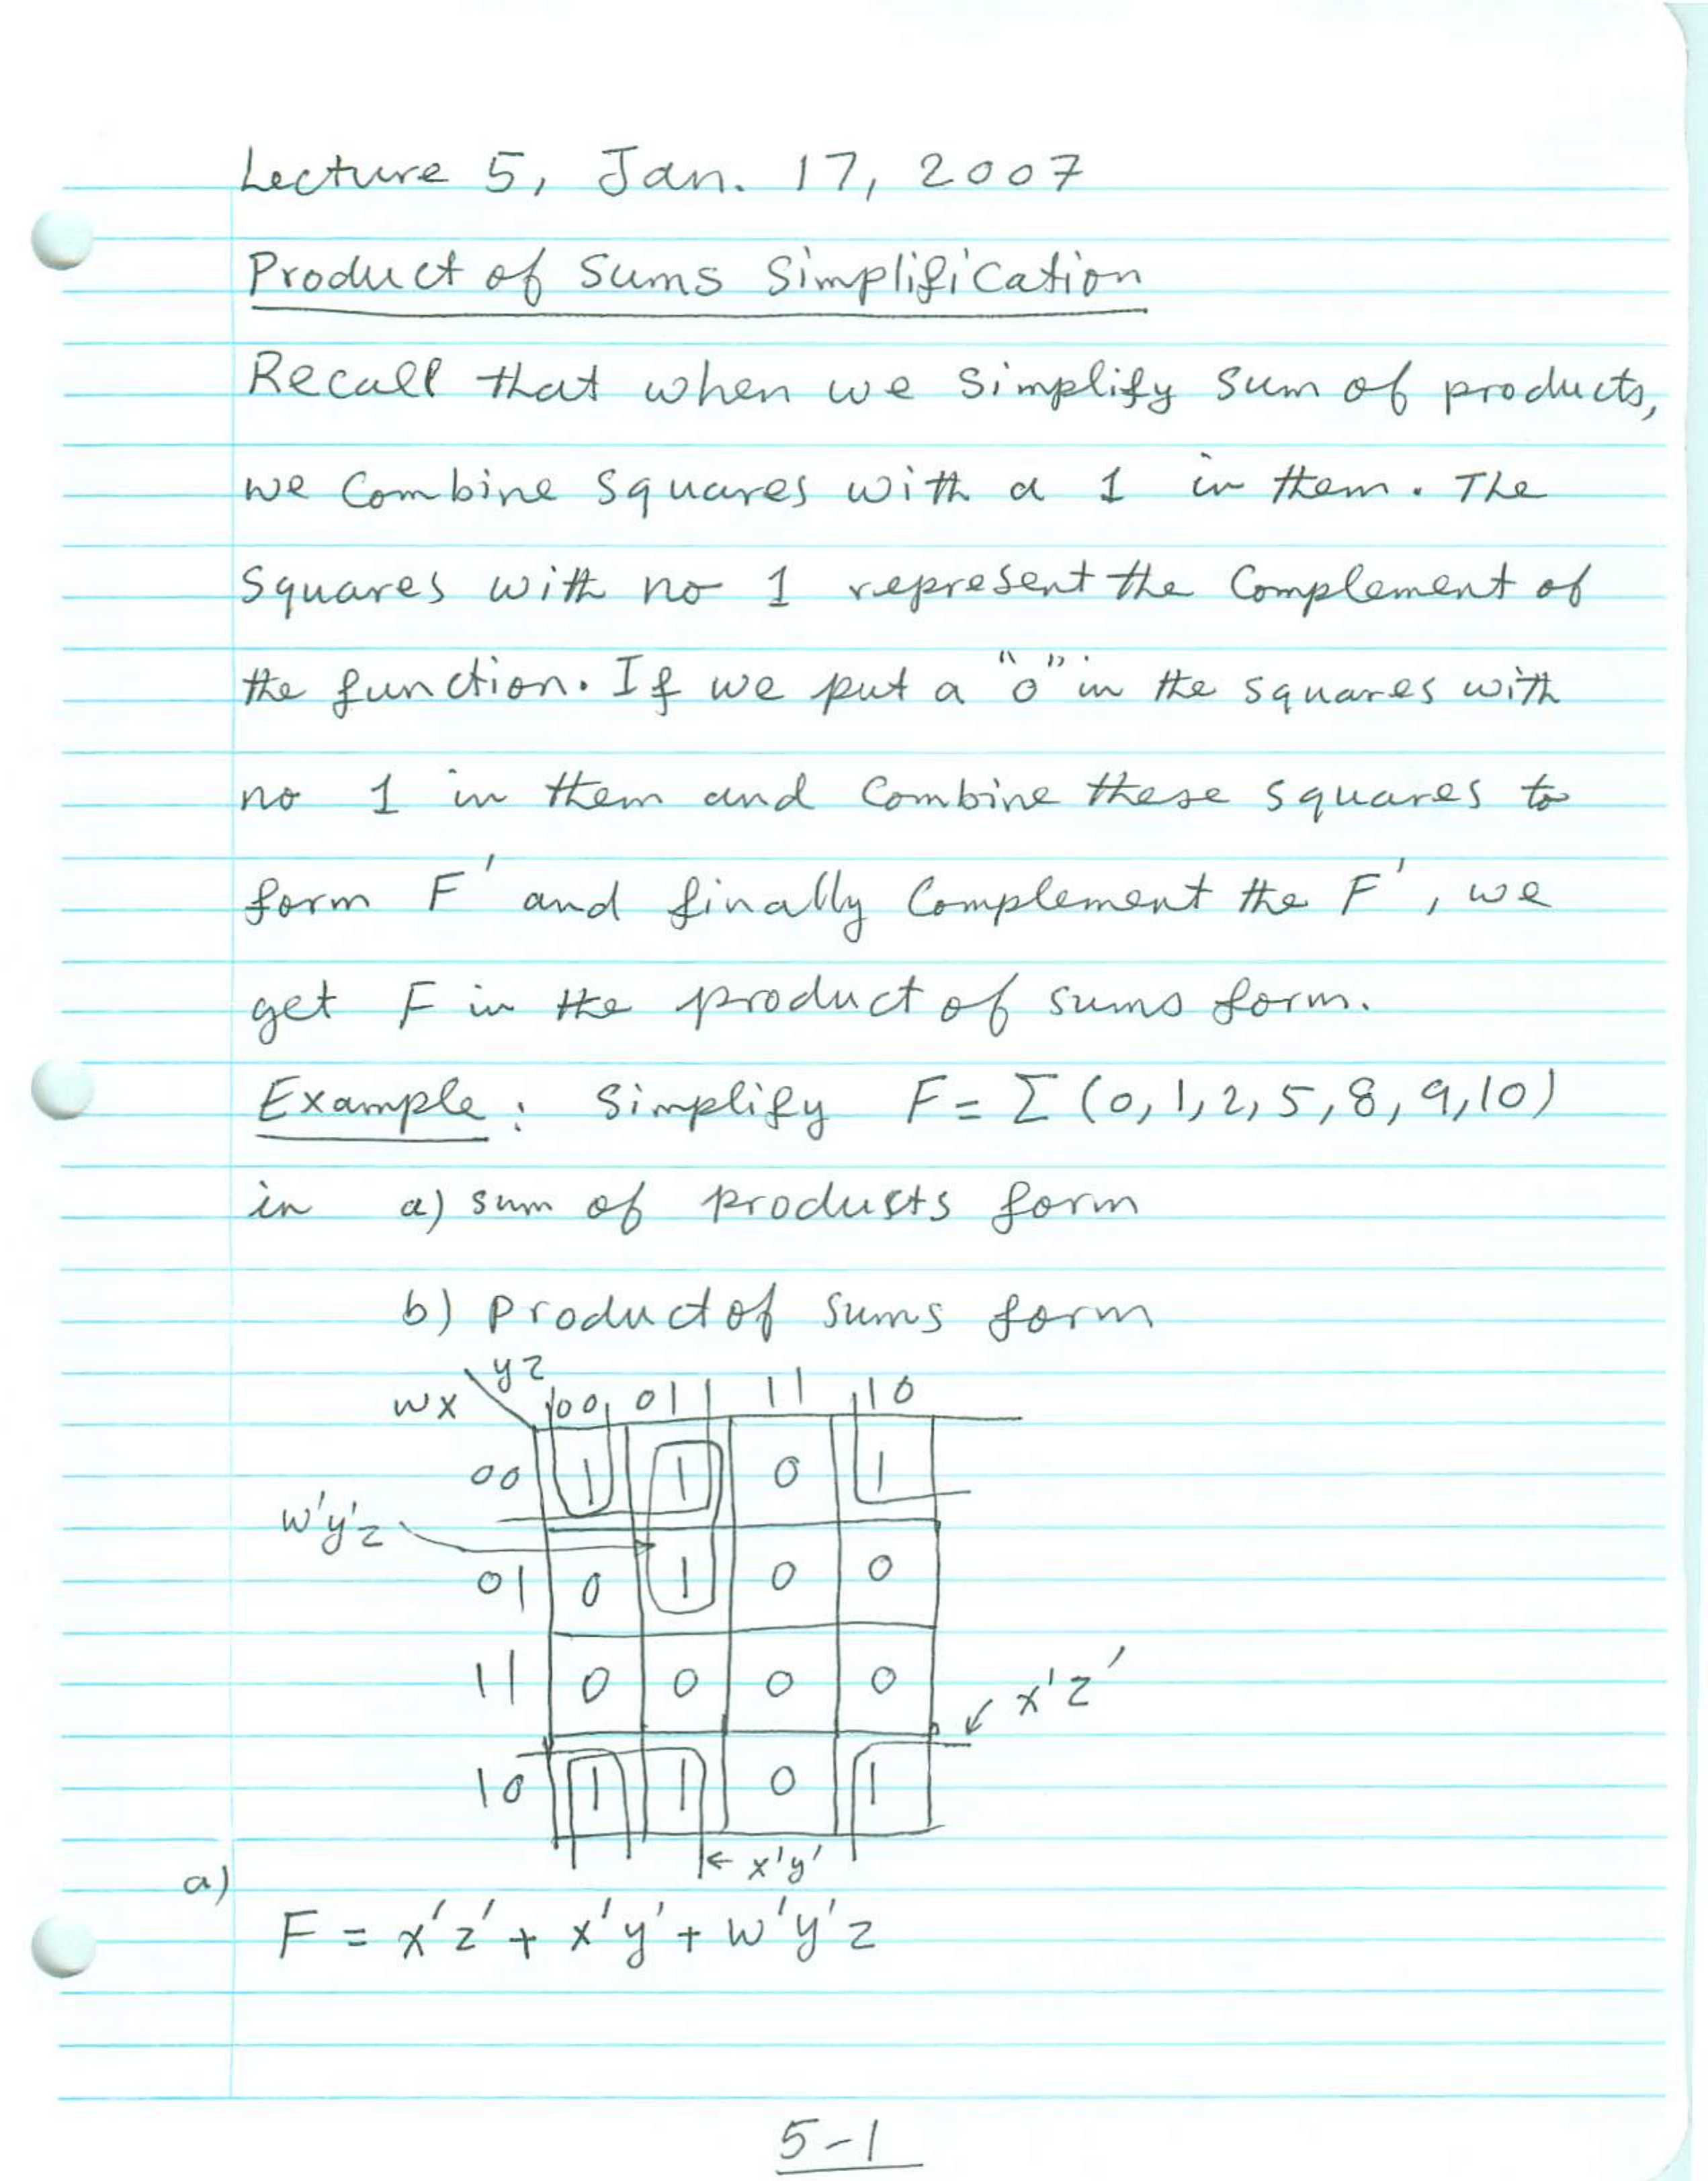 Lecture 5, Jan. 17, 2007
Product of Sums Simplification
Recall that when we simplify sum of products,
we combine squares with a 1 in them. The
squares with no 1 represent the complement of
the function. If we put a "0" in the squares with
no 1 in them and combine these squares to
form F' and finally complement the F', we
get F in the product of sums form.
Example: Simplify F = Σ (0, 1, 2, 5, 8, 9, 10)
in a) sum of products form
b) product of sums form
yz
wx 00 01 11 10
00 1 1 0 1
w'y'z
01 0 1 0 0
11 0 0 0 0
x'z'
10 1 1 0 1
← x'y'
a)
F = x'z' + x'y' + w'y'z
5-1